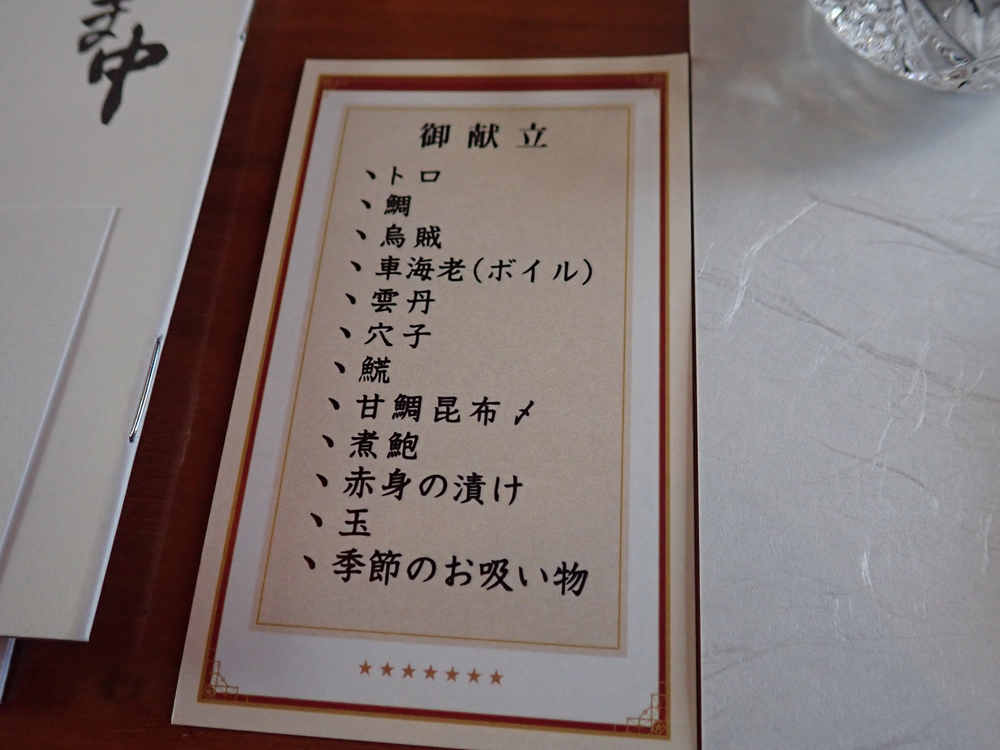 ま中
御献立
、トロ
、鯛
、烏賊
、車海老(ボイル)
、雲丹
、穴子
、鱚
、甘鯛昆布〆
、煮鮑
、赤身の漬け
、玉
、季節のお吸い物